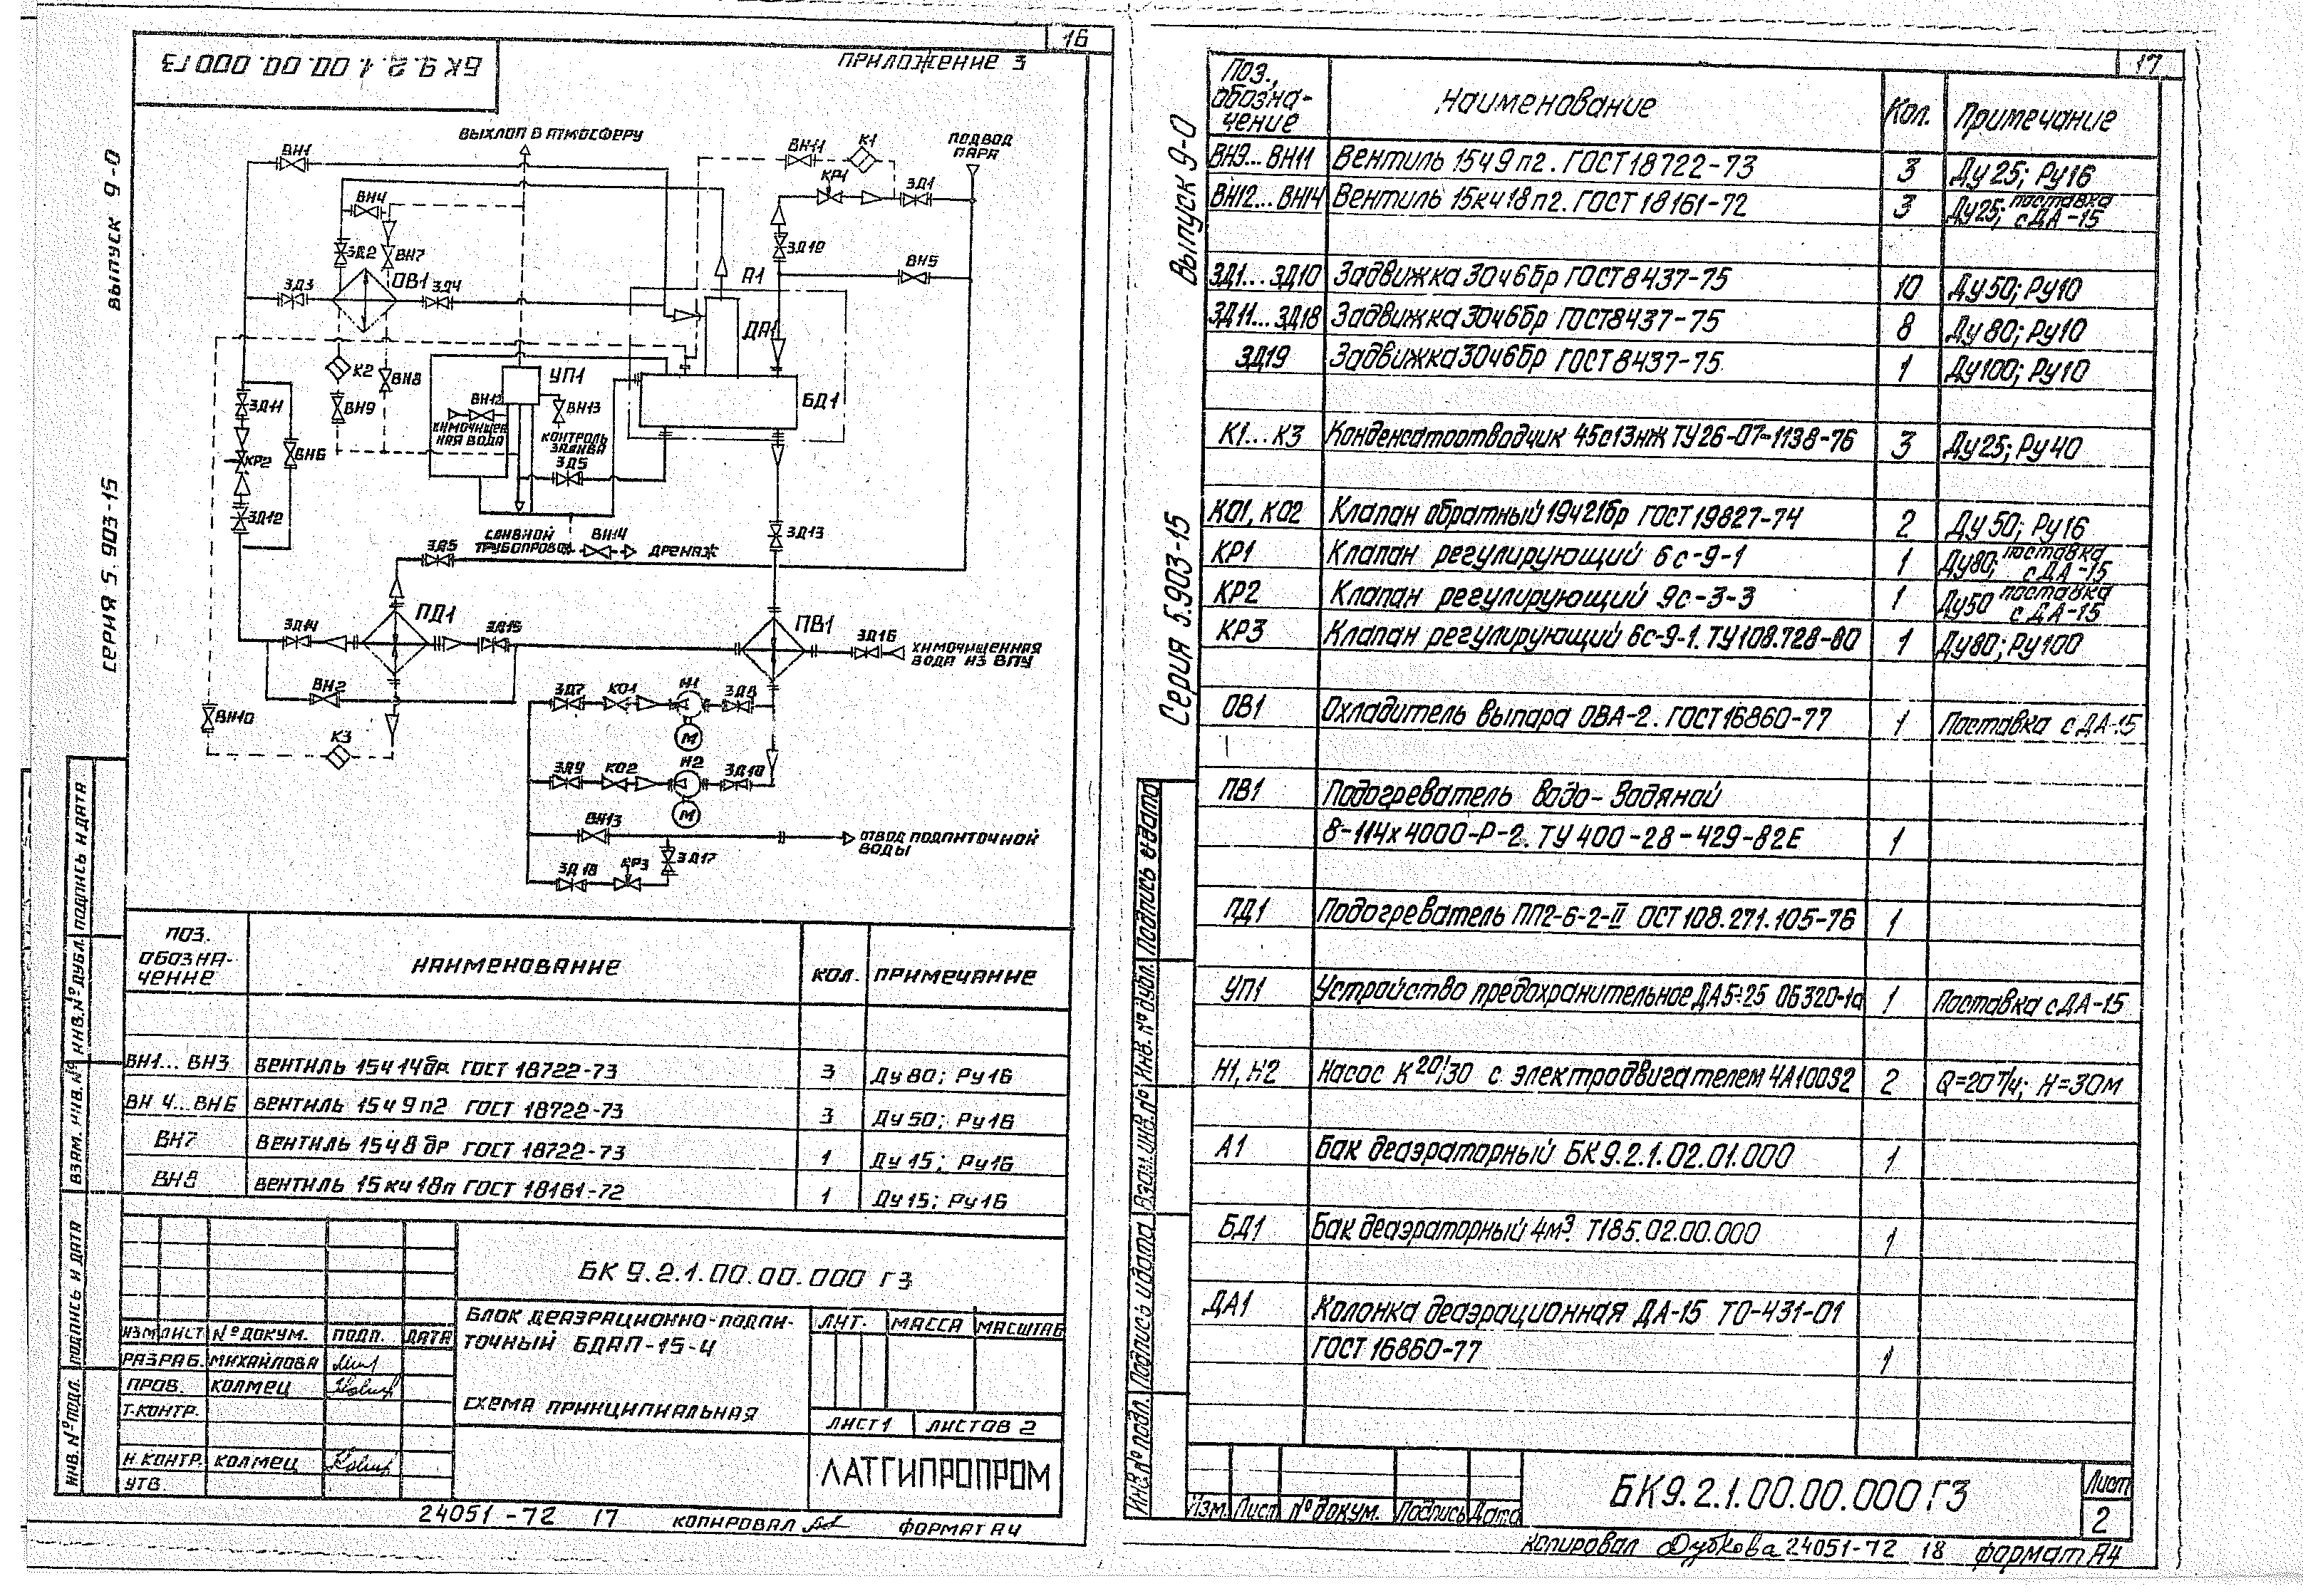 16
БК 9.2.1.00.00.000 Г3
ПРИЛОЖЕНИЕ 3
ВЫПУСК 9-0
СЕРИЯ 5.903-15
ВЫХЛОП В АТМОСФЕРУ
ПОДВОД
ПАРА
ВН1
ВН11
К1
КР1
ЗД1
ВН4
ЗД2
ВН7
ЗД10
ВН5
ЗД3
ОВ1
ЗД4
А1
ДА1
К2
ВН8
УП1
БД1
ЗД11
ВН9
ВН12
ВН13
ХИМОЧИЩЕН
НАЯ ВОДА
КОНТРОЛЬ
ЗАЛИВА
ЗД5
КР2
ВН6
ЗД12
СЛИВНОЙ
ТРУБОПРОВОД
ВН14
ДРЕНАЖ
ЗД13
ЗД5
ПД1
ЗД14
ЗД15
ПВ1
ЗД16
ХИМОЧИЩЕННАЯ
ВОДА ИЗ ВПУ
ВН2
ВН10
К3
ЗД7
КО1
Н1
ЗД8
М
ЗД9
КО2
Н2
ЗД10
М
ВН3
ОТВОД ПОДПИТОЧНОЙ
ВОДЫ
ЗД18
КР3
ЗД17
ПОЗ.
ОБОЗНА-
ЧЕНИЕ
НАИМЕНОВАНИЕ
КОЛ.
ПРИМЕЧАНИЕ
ВН1... ВН3 ВЕНТИЛЬ 15ч14бр ГОСТ 18722-73 3 Ду 80; Ру16
ВН4...ВН6 ВЕНТИЛЬ 15ч9п2 ГОСТ 18722-73 3 Ду 50; Ру16
ВН7 ВЕНТИЛЬ 15ч8бр ГОСТ 18722-73 1 Ду 15; Ру16
ВН8 ВЕНТИЛЬ 15кч18п ГОСТ 18161-72 1 Ду 15; Ру16
БК 9.2.1.00.00.000 Г3
БЛОК ДЕАЭРАЦИОННО-ПОДПИ-
ТОЧНЫЙ БДАП-15-4
СХЕМА ПРИНЦИПИАЛЬНАЯ
ЛИТ. МАССА МАСШТАБ
ЛИСТ 1 ЛИСТОВ 2
ЛАТГИПРОПРОМ
ИЗМ ЛИСТ № ДОКУМ. ПОДП. ДАТА
РАЗРАБ. МИХАЙЛОВА
ПРОВ. КОЛМЕЦ
Т.КОНТР.
Н.КОНТР. КОЛМЕЦ
УТВ
ПОДПИСЬ И ДАТА
ИНВ.№ ДУБЛ.
ВЗАМ. ИНВ.№
ПОДПИСЬ И ДАТА
ИНВ.№ ПОДЛ.
24051-72 17 КОПИРОВАЛ ФОРМАТ А4
17
Выпуск 9-0
Серия 5.903-15
Поз.,
обозна-
чение
Наименование
Кол.
Примечание
ВН9... ВН11 Вентиль 15ч9п2. ГОСТ 18722-73 3 Ду 25; Ру16
ВН12... ВН14 Вентиль 15кч18п2. ГОСТ 18161-72 3 Ду25; поставка с ДА-15
ЗД1... ЗД10 Задвижка 30ч6бр ГОСТ 8437-75 10 Ду50; Ру10
ЗД11... ЗД18 Задвижка 30ч6бр ГОСТ 8437-75 8 Ду 80; Ру10
ЗД19 Задвижка 30ч6бр ГОСТ 8437-75 1 Ду100; Ру10
К1... К3 Конденсатоотводчик 45с13нж ТУ 26-07-1138-76 3 Ду25; Ру40
КО1, КО2 Клапан обратный 19ч21бр ГОСТ 19827-74 2 Ду 50; Ру16
КР1 Клапан регулирующий 6с-9-1 1 Ду80; поставка с ДА-15
КР2 Клапан регулирующий 9с-3-3 1 Ду50 поставка с ДА-15
КР3 Клапан регулирующий 6с-9-1. ТУ108.728-80 1 Ду80; Ру100
ОВ1 Охладитель выпара ОВА-2. ГОСТ 16860-77 1 Поставка с ДА-15
ПВ1 Подогреватель водо-водяной
8-114х4000-Р-2. ТУ 400-28-429-82Е 1
ПД1 Подогреватель ПП2-6-2-II ОСТ 108.271.105-76 1
УП1 Устройство предохранительное ДА5÷25 ОБ320-1а 1 Поставка с ДА-15
Н1, Н2 Насос К20/30 с электродвигателем 4А100S2 2 Q=20т/ч; Н=30м
А1 Бак деаэраторный БК 9.2.1.02.01.000 1
БД1 Бак деаэраторный 4м³ Т185.02.00.000 1
ДА1 Колонка деаэрационная ДА-15 ТО-431-01
ГОСТ 16860-77 1
Подпись и дата
Инв.№ дубл.
Взам.инв.№
Подпись и дата
Инв.№ подл.
Изм. Лист № докум. Подпись Дата
БК 9.2.1.00.00.000 Г3
Лист
2
Копировал Дубкова 24051-72 18 формат А4